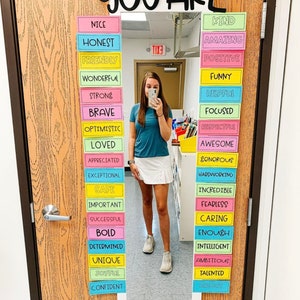 YOU ARE
NICE
HONEST
FRIENDLY
WONDERFUL
STRONG
BRAVE
OPTIMISTIC
LOVED
APPRECIATED
EXCEPTIONAL
SAFE
IMPORTANT
SUCCESSFUL
BOLD
DETERMINED
UNIQUE
JOYFUL
CONFIDENT
KIND
AMAZING
POSITIVE
FUNNY
HELPFUL
FOCUSED
RESPECTFUL
AWESOME
GENEROUS
HARDWORKING
INCREDIBLE
FEARLESS
CARING
ENOUGH
INTELLIGENT
AMBITIOUS
TALENTED